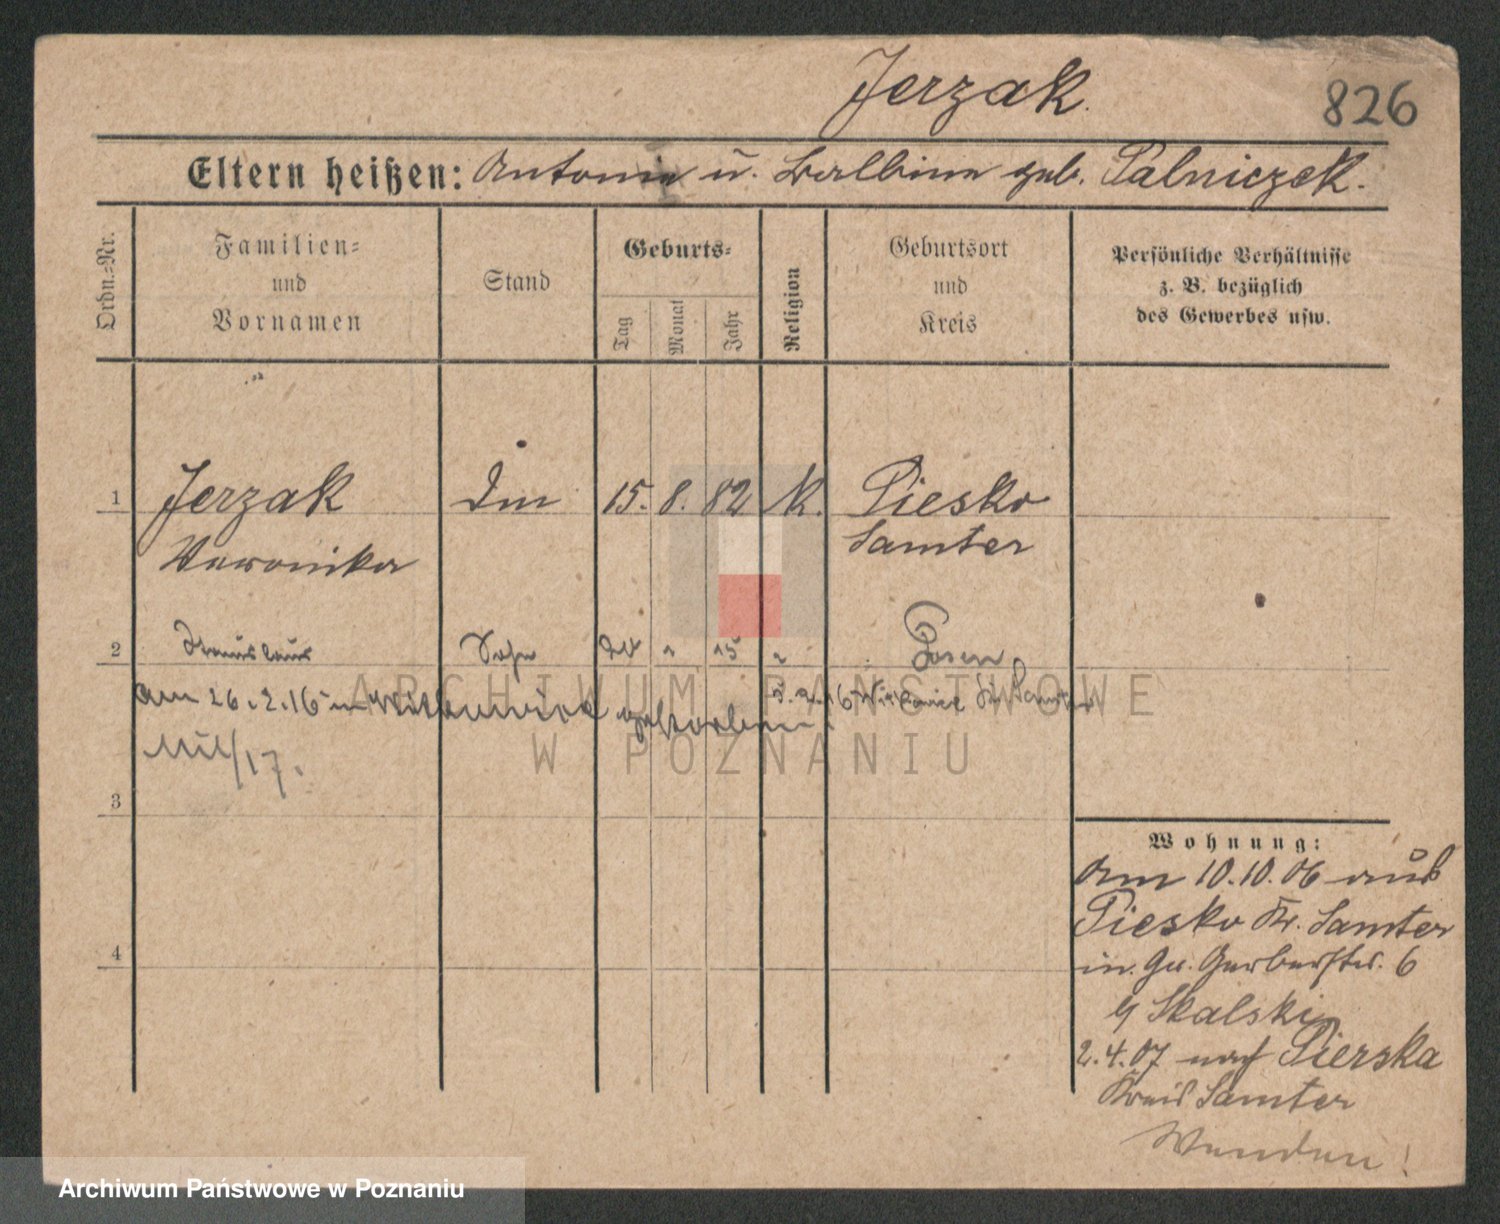 Jerzak.
826
Eltern heißen: Antonie u. Balbina geb. Palniczek.
Ordn.-Nr.
Familien-
und
Vornamen
Stand
Geburts-
Tag
Monat
Jahr
Religion
Geburtsort
und
Kreis
Persönliche Verhältnisse
z. B. bezüglich
des Gewerbes usw.
1 Jerzak 15. 8. 82 K. Piesko
Veronika Samter
2 Stanislaus Sohn 15 Posen
am 26.2.16 in gestorben.
/17.
3
4
Wohnung:
Am 10.10.06 aus
Piesko Kr. Samter
in Gr. Gerberstr. 6
b/ Skalski
2.4.07 nach Pierska
Kreis Samter
Wenden!
ARCHIWUM PAŃSTWOWE
W POZNANIU
Archiwum Państwowe w Poznaniu